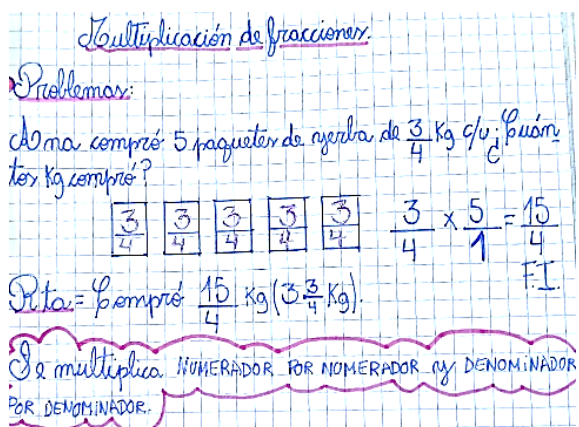 Multiplicación de fracciones.
Problemas:
Ana compró 5 paquetes de yerba de 3/4 Kg c/u ¿Cuán
tos Kg compró?
3/4 3/4 3/4 3/4 3/4 3/4 x 5/1 = 15/4
F.I.
Rta = Compró 15/4 Kg (3 3/4 Kg).
Se multiplica NUMERADOR POR NUMERADOR y DENOMINADOR
POR DENOMINADOR.